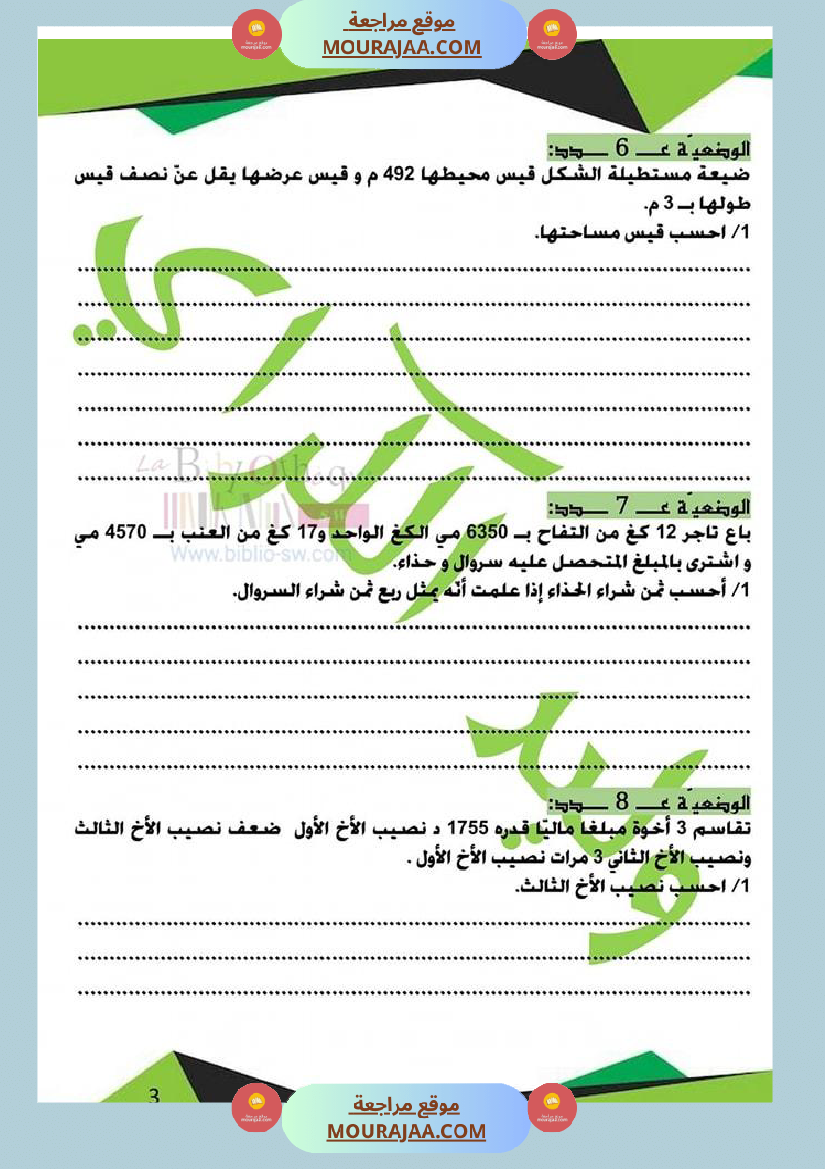 موقع مراجعة
MOURAJAA.COM
الوضعيّة عـــ 6 ـــدد:
ضيعة مستطيلة الشكل قيس محيطها 492 م و قيس عرضها يقل عنّ نصف قيس
طولها بـ 3 م.
1/ احسب قيس مساحتها.
La Bibliothèque
الوضعيّة عـــ 7 ـــدد:
باع تاجر 12 كغ من التفاح بـ 6350 مي الكغ الواحد و17 كغ من العنب بـ 4570 مي
www.biblio-sw.com
و اشترى بالمبلغ المتحصل عليه سروال و حذاء.
1/ أحسب ثمن شراء الحذاء إذا علمت أنّه يمثل ربع ثمن شراء السروال.
الوضعيّة عـــ 8 ـــدد:
تقاسم 3 أخوة مبلغا ماليّا قدره 1755 د نصيب الأخ الأول ضعف نصيب الأخ الثالث
ونصيب الأخ الثاني 3 مرات نصيب الأخ الأول .
1/ احسب نصيب الأخ الثالث.
3
موقع مراجعة
MOURAJAA.COM